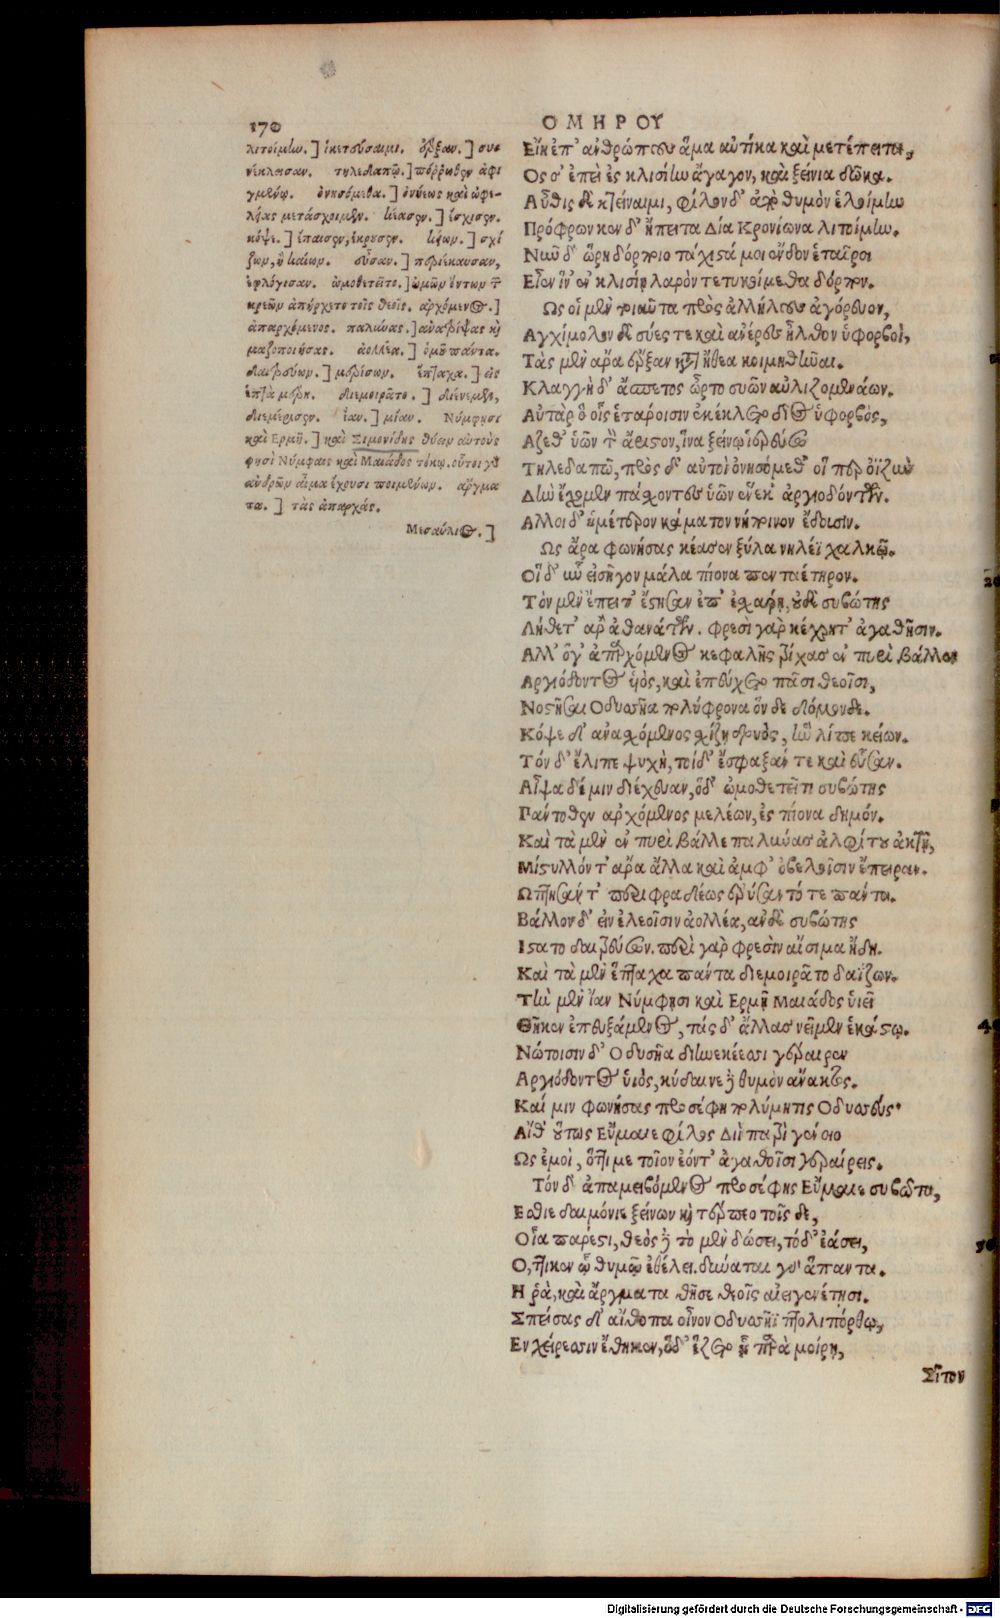 170
ΟΜΗΡΟΥ
λιτοίμην.] ἱκετεύσαιμι. ἔρξαν.] συν
έκλεισαν. τηλεδαπῷ.] πόρρωθεν ἀφι
γμένῳ. ὀνησόμεθα.] ὀνήσεως καὶ ὠφε-
λείας μετάσχοιμεν. κέασεν.] ἔσχισεν.
κόψε.] ἔπαισεν, ἔκρουσεν. κείων.] σχί
ζων, ἢ καίων. εὗσαν.] περιέκαυσαν,
ἐφλόγισαν. ὠμοθετεῖτο.] ὠμῶν ὄντων τῶν
κρεῶν ἀπήρχετο τοῖς θεοῖς. ἀρχόμενος.]
ἀπαρχόμενος. παλύνας.] ἀναδρίψας καὶ
μαζοποιήσας. ἀολλέα.] ὁμοῦ πάντα.
δαιτρεύων.] μερίσων. ἕπταχα.] εἰς
ἑπτὰ μέρη. διεμοιρᾶτο.] διένειμεν,
διεμέρισεν. ἴαν.] μίαν. Νύμφησι
καὶ Ερμῇ.] καὶ Σιμωνίδης θύειν αὐτοὺς
φησὶ Νύμφαις καὶ Μαιάδος τόκῳ. οὗτοι γὰρ
ἀνδρῶν αἷμα ἔχουσι ποιμένων. ἄργμα
τα.] τὰς ἀπαρχάς.
Μεσαύλιος.]
Εἴη ἐπ' ἀνθρώπους ἅμα αὐτίκα καὶ μετέπειτα,
Ος σ' ἐπεὶ ἐς κλισίην ἄγαγον, καὶ ξείνια δῶκα.
Αὖθις δὲ κτείναιμι, φίλον δ' ἀπὸ θυμὸν ἑλοίμην
Πρόφρων κεν δ' ἤπειτα Δία Κρονίωνα λιτοίμην.
Νῦν δ' ὥρη δόρποιο τάχιστά μοι ἔνδον ἑταῖροι
Εἶεν ἵν' ἐν κλισίῃ λαρὸν τετυκοίμεθα δόρπον.
Ως οἱ μὲν τοιαῦτα πρὸς ἀλλήλους ἀγόρευον,
Αγχίμολον δὲ σύες τε καὶ ἀνέρες ἦλθον ὑφορβοὶ,
Τὰς μὲν ἄρα ἔρξαν κατὰ ἤθεα κοιμηθῆναι.
Κλαγγὴ δ' ἄσπετος ὦρτο συῶν αὐλιζομενάων.
Αὐτὰρ ὁ οἷς ἑτάροισιν ἐκέκλετο δῖος ὑφορβὸς,
Αξεθ' ὑῶν τὸν ἄριστον, ἵνα ξείνῳ ἱερεύσω
Τηλεδαπῷ, πρὸς δ' αὐτοὶ ὀνησόμεθ' οἵ περ ὀϊζὺν
Δὴν ἔχομεν πάσχοντες ὑῶν ἕνεκ' ἀργιοδόντων.
Αλλοι δ' ἡμέτερον κάματον νήποινον ἔδουσιν.
Ως ἄρα φωνήσας κέασεν ξύλα νηλέϊ χαλκῷ.
Οἵ δ' ὗν εἰσῆγον μάλα πίονα πενταέτηρον.
Τὸν μὲν ἔπειτ' ἔστησαν ἐπ' ἐσχάρῃ, οὐδὲ συβώτης
Λήθετ' ἄρ' ἀθανάτων. φρεσὶ γὰρ κέχρητ' ἀγαθῇσιν.
Αλλ' ὅγ' ἀπαρχόμενος κεφαλῆς τρίχας ἐν πυρὶ βάλλεν
Αργιόδοντος ὑὸς, καὶ ἐπεύχετο πᾶσι θεοῖσι,
Νοστῆσαι Οδυσῆα πολύφρονα ὅνδε δόμονδε.
Κόψε δ' ἀνασχόμενος σχίζῃ δρυὸς, ἣν λίπε κείων.
Τόν δ' ἔλιπε ψυχὴ, τοὶ δ' ἔσφαξάν τε καὶ εὗσαν.
Αἶψα δέ μιν διέχευαν, ὅδ' ὠμοθετεῖτο συβώτης
Πάντοθεν ἀρχόμενος μελέων, ἐς πίονα δημόν.
Καὶ τὰ μὲν ἐν πυρὶ βάλλε παλύνας ἀλφίτου ἀκτῇ,
Μίστυλλόν τ' ἄρα ἄλλα καὶ ἀμφ' ὀβελοῖσιν ἔπειραν.
Ωπτησάν τ' περιφραδέως ἐρύσαντό τε πάντα.
Βάλλον δ' εἰν ἐλεοῖσιν ἀολλέα, ἂν δὲ συβώτης
Ιστατο δαιτρεύσων. περὶ γὰρ φρεσὶν αἴσιμα ᾔδη.
Καὶ τὰ μὲν ἕπταχα πάντα διεμοιρᾶτο δαΐζων.
Τὴν μὲν ἴαν Νύμφῃσι καὶ Ερμῇ Μαιάδος υἱεῖ
Θῆκεν ἐπευξάμενος, τὰς δ' ἄλλας νεῖμεν ἑκάστῳ.
Νώτοισιν δ' Οδυσῆα διηνεκέεσσι γέραιρεν
Αργιόδοντος ὑὸς, κύδαινε δὲ θυμὸν ἄνακτος.
Καί μιν φωνήσας προσέφη πολύμητις Οδυσσεύς·
Αἴθ' οὕτως Εὔμαιε φίλος Διῒ πατρὶ γένοιο
Ως ἐμοὶ, ὅττι με τοῖον ἐόντ' ἀγαθοῖσι γεραίρεις.
Τόν δ' ἀπαμειβόμενος προσέφης Εὔμαιε συβῶτα,
Εσθιε δαιμόνιε ξείνων καὶ τέρπεο τοῖσδε,
Οἷα πάρεστι, θεὸς δὲ τὸ μὲν δώσει, τὸ δ' ἐάσει,
Ο, ττι κεν ᾧ θυμῷ ἐθέλει. δύναται γὰρ ἅπαντα.
Η ῥὰ, καὶ ἄργματα θῦσε θεοῖς αἰειγενέτῃσι.
Σπείσας δ' αἴθοπα οἶνον Οδυσσῆϊ πτολιπόρθῳ,
Εν χείρεσσιν ἔθηκεν, ὅδ' ἕζετο ᾗ παρὰ μοίρῃ,
Σῖτον
Digitalisierung gefördert durch die Deutsche Forschungsgemeinschaft - DFG